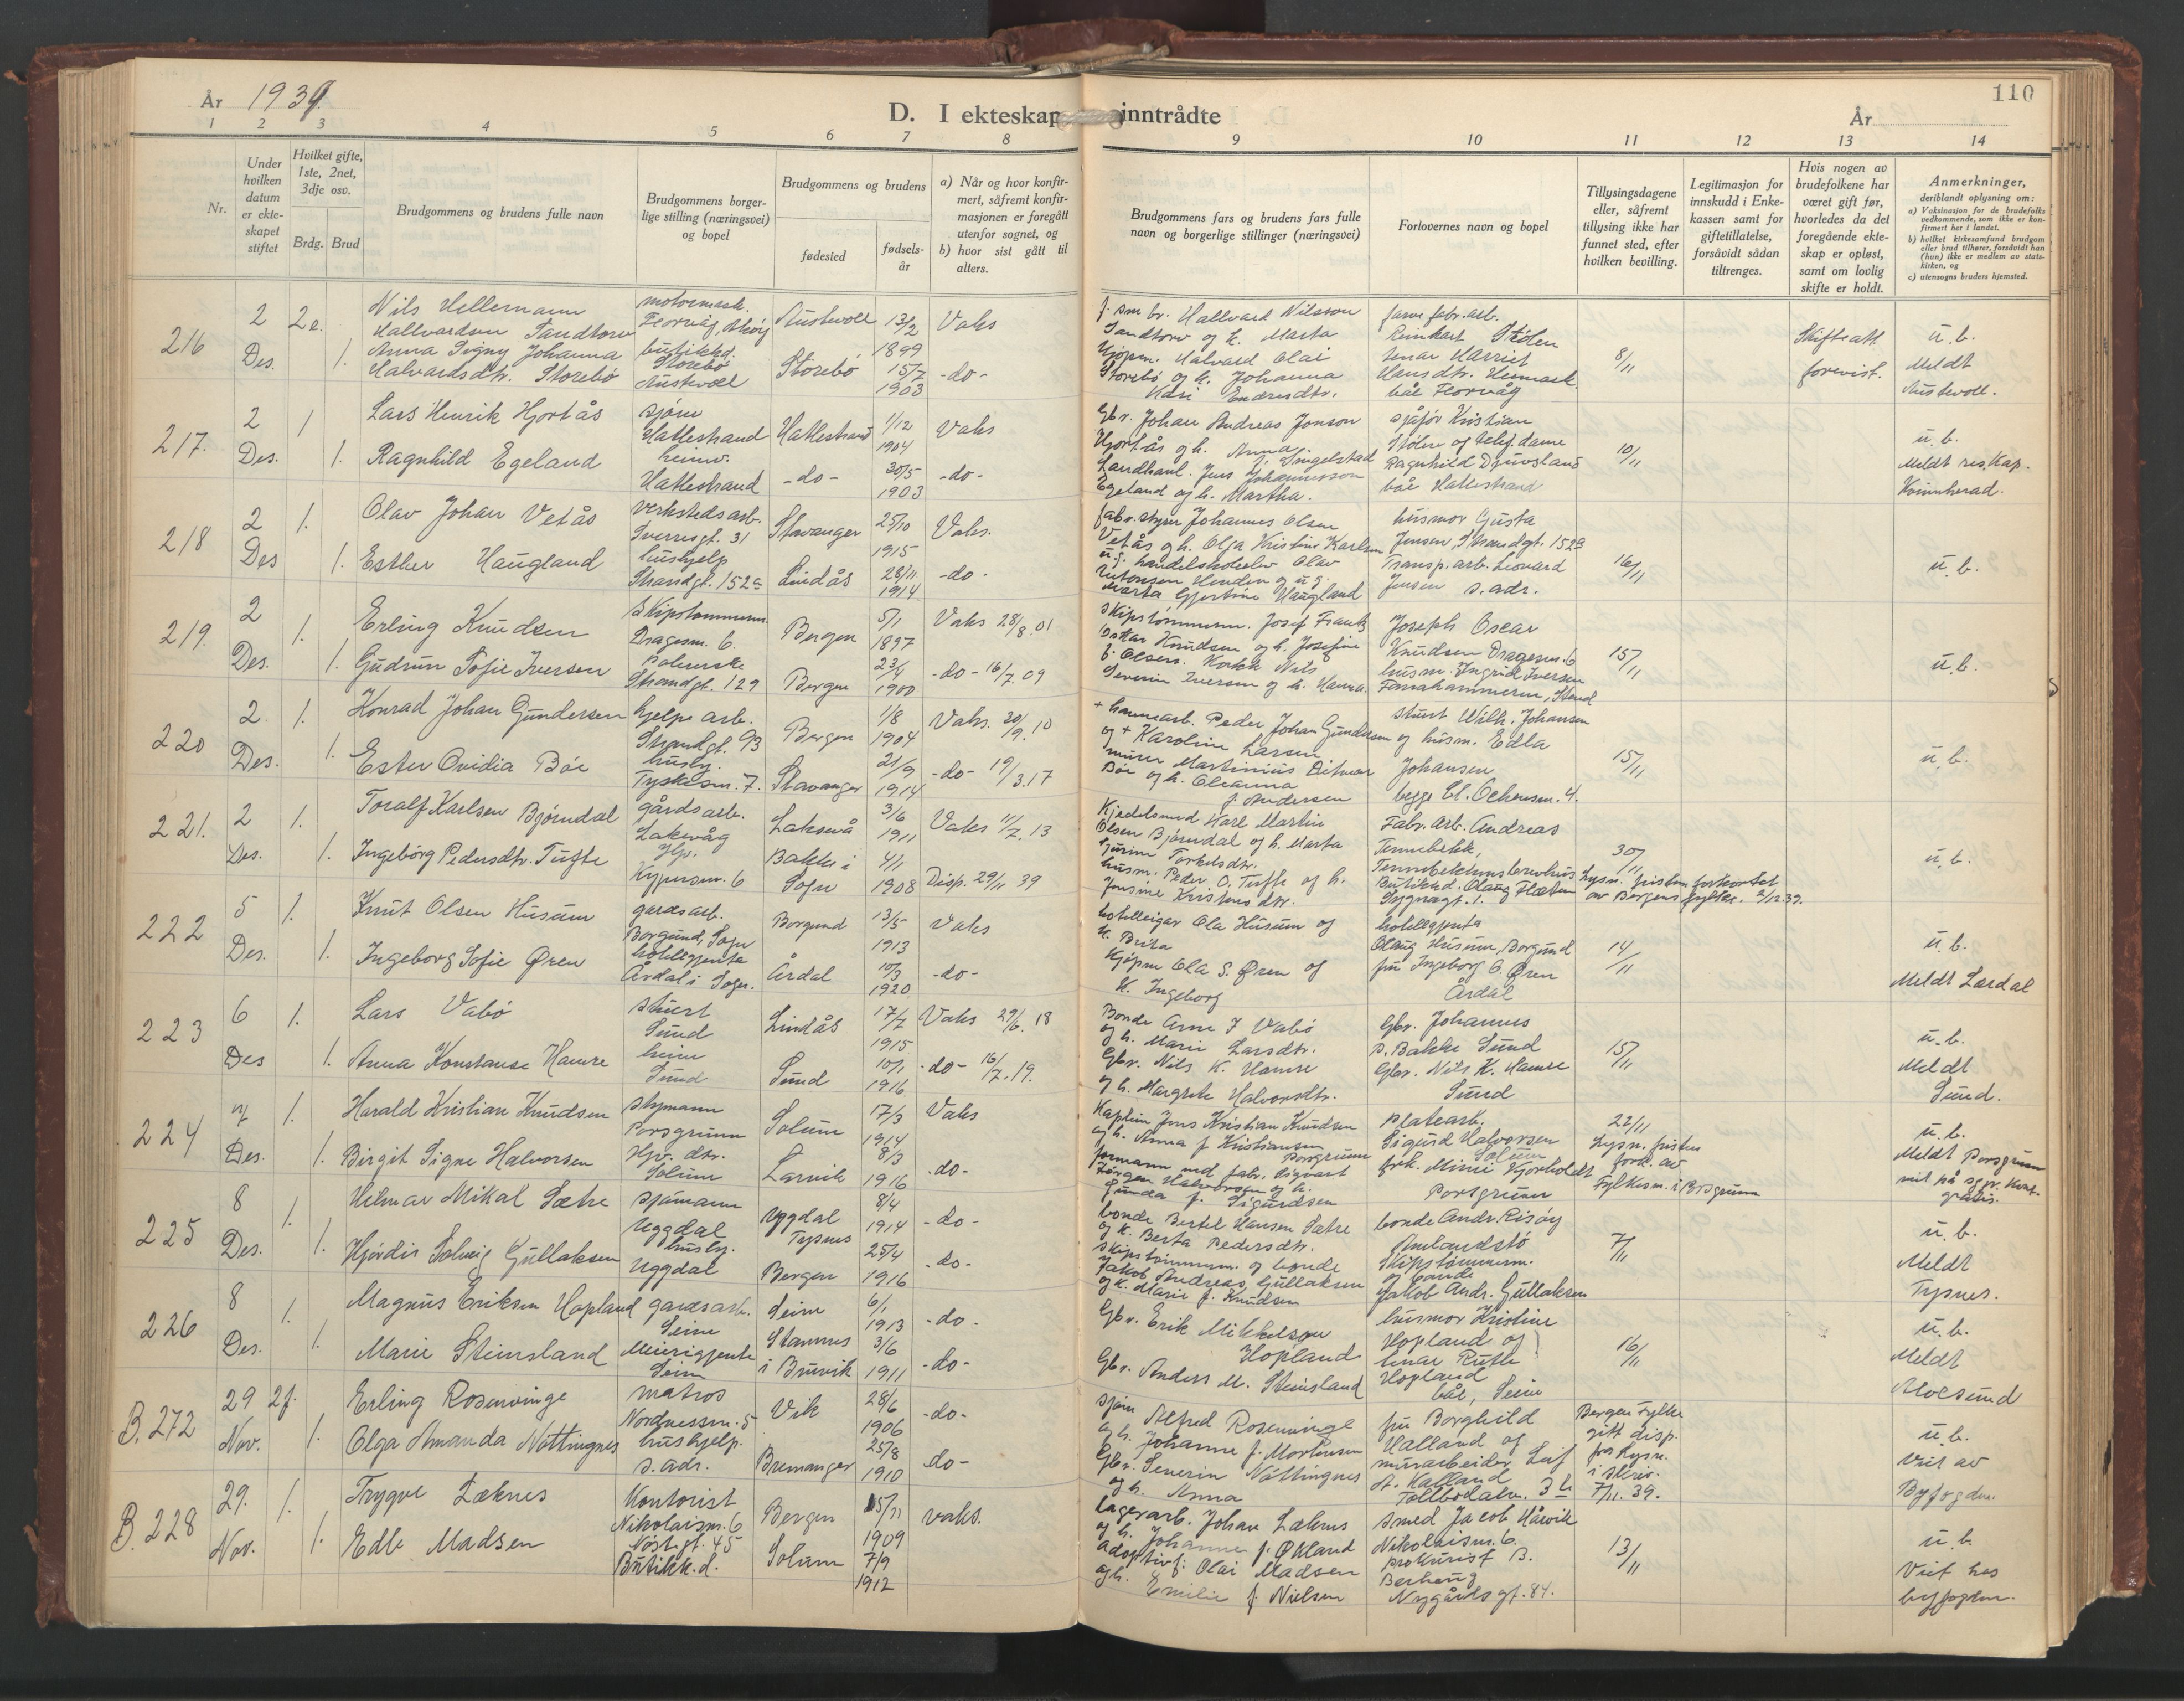 År 1939
D. I ekteskap inntrådte
År
110
1 2 3 4 5 6 7 8 9 10 11 12 13 14
Nr.
Under hvilken datum er ekteskapet stiftet
Hvilket gifte, 1ste, 2net, 3dje osv.
Brdg. Brud
Brudgommens og brudens fulle navn
Brudgommens borgerlige stilling (næringsvei) og bopel
Brudgommens og brudens
fødested
fødselsår
a) Når og hvor konfirmert, såfremt konfirmasjonen er foregått utenfor sognet, og
b) hvor sist gått til alters.
Brudgommens fars og brudens fars fulle navn og borgerlige stillinger (næringsvei)
Forlovernes navn og bopel
Tillysingsdagene eller, såfremt tillysing ikke har funnet sted, efter hvilken bevilling.
Legitimasjon for innskudd i Enkekassen samt for giftetillatelse, forsåvidt sådan tiltrenges.
Hvis nogen av brudefolkene har været gift før, hvorledes da det foregående ekteskap er opløst, samt om lovlig skifte er holdt.
Anmerkninger, deriblandt oplysning om:
a) Vaksinasjon for de brudefolks vedkommende, som ikke er konfirmert her i landet.
b) hvilket kirkesamfund brudgom eller brud tilhører, forsåvidt han (hun) ikke er medlem av statskirken, og
c) utensogns bruders hjemsted.
216
2 Des.
2e. 1.
Nils Hellemann
Hallvardsen Sandtorv
Anna Signy Johanna
Halvardsdtr. Storebø
motormask.
Florvåg, Askøy
butikkd.
Storebø
Austevoll
Austevoll 13/2 1899
Storebø 15/7 1903
Vaks
-do-
Hallvard Nilsson
Sandtorv og h. Marta
Kjøpm. Halvard Olai
Storebø og h. Johanna
Kari Endresdtr.
farve fabr. arb.
Reinhart Stølen
Harriet
Hansdtr. Heimark
båe Florvåg
8/11
Skifteatt.
forevist.
u. b.
Meldt
Austevoll.
217.
2 Des.
1 1.
Lars Henrik Hjortås
Ragnhild Egeland
sjøm
Hatlestrand
heimv.
Hatlestrand
Hatlestrand 1/12 1904
-do- 30/5 1903
Vaks
-do-
Gbr. Johan Andreas Jonson
Hjortås og h. Anna f. Engelstad
Landhanl. Jens Johannesson
Egeland og h. Martha.
sjåfør Kristian
Stølen og telef. dame
Ragnhild Djuvsland
båe Hatlestrand
10/11
u. b.
Meldt res. Kap.
Kvinnherad.
218
2 Des
1. 1.
Olav Johan Vetås
Esther Haugland
Verkstedsarb.
Sverresgt. 31
hushjelp
Strandgt. 152a
Stavanger 25/10 1915
Lindås 28/11 1914
Vaks.
-do-
fabr. styrer Johannes Olsen
Vetås og h. Olga Kristine Karlsen
Marta Gjertine Haugland
husmor Gusta
Jensen, Strandgt. 152a
Transp. arb. Leonard
Jensen s. adr.
16/11
u. b.
219.
2 Des.
1. 1.
Erling Knudsen
Gudrun Sofie Iversen
Skipstømmerm.
Dragesm. 6
Strandgt. 129
Bergen 5/1 1897
Bergen 23/4 1900
Vaks 28/8.01
-do- 16/7.09
Skipstømmerm. Josef Frantz
Oskar Knudsen og h. Josefine
f. Olsen. Kokk Nils
Severin Iversen og h. Hanna.
Joseph Oscar
Knudsen Dragesm. 6
husm. Ingrid Iversen
Fanahammeren, Stend
15/11
u. b.
220
2. Des.
1. 1.
Konrad Johan Gundersen
Ester Ovidia Bøe
hjelpe arb.
Strandgt. 93
husby.
Tyskesm. 7.
Bergen 1/8 1904
Stavanger 21/9 1914
Vaks. 30/9.10
-do- 19/3.17
+ havnearb. Peder Johan Gundersen
og + Karoline Larsen
murer Martinius Ditmar
Bøe og h. Oleanna
f. Andersen
stuert Wilh. Johansen
og husm. Edla
Johansen
begge Cl. Ockensm. 4.
15/11
u. b.
221.
2 Des.
1. 1.
Toralf Karlsen Bjørndal
Ingebørg Pedersdtr. Tufte
gårdsarb.
Laksvåg
Hp.
Kypersm. 6
Laksevå 3/6 1911
Bakke i Sogn 4/1 1908
Vaks 11/7.13
Disp. 29/11 39
Kjedelsmed Karl Martin
Olsen Bjørndal og h. Marta
Gurine Torkelsdtr.
husm. Peder O. Tufte og h.
Jensine Kristensdtr.
Fabr. arb. Andreas
Tennebekk,
Butikkd. Olaug Fletten
30/11
Lysn. fristen forkortet
av Bergens fylke. 2/12.39.
u. b.
222
5 Des.
1. 1.
Knut Olsen Husum
Ingeborg Sofie Øren
gardsarb.
Borgund, Sogn
hotellgjenta
Årdal i Sogn.
Borgund 13/5 1913
Årdal 10/3 1920
Vaks
-do-
hotelleigar Ola Husum og
k. Brita
Kjøpm Ola S. Øren og
K. Ingeborg
hotellgjenta
Olaug Husum, Borgund
fru Ingeborg O. Øren
Årdal
14/11
u. b.
Meldt Lærdal
223
6 Des
1. 1.
Lars Vabø
Anna Konstanse Hamre
stuert
Sund
heim
Sund
Lindås 17/7 1915
Sund 10/1 1916
Vaks 29/6.18
-do- 16/7.19.
Bonde Arne J Vabø
og h. Marie Larsdtr.
Gbr. Nils K. Hamre
og h. Margrete Halvorsdtr.
Gbr. Johannes
s. Bakke Sund
Gbr. Nils K. Hamre
Sund
15/11
u. b.
Meldt
Sund.
224
7 Des.
1. 1.
Harald Kristian Knudsen
Birgit Signe Halvorsen
styrmann
Porsgrunn
Hjv. dtr.
Solum
Solum 17/3 1914
Larvik 8/3 1916
Vaks
-do-
Kaptein Jens Kristian Knudsen
og h. Anna f. Kristiansen
Porsgrunn
formann ved fabr. Sigvart
Jørgen Halvorsen og h.
Gunda f. Sigurdsen
platearb.
Sigurd Halvorsen
Solum
frk. Minni Kjørholdt
Porsgrunn
22/11
Lysn. fristen
fork. av
Fylkesm. i Porsgrunn
u. b.
Meldt Porsgrunn
225
8 Des.
1. 1.
Hilmar Mikal Sætre
Hjørdis Solveig Gullaksen
sjømann
Uggdal
husby.
Uggdal
Uggdal Tysnes 8/4 1914
Bergen 25/4 1916
-do-
-do-
bonde Bertel Hansen Sætre
og k. Berta Pedersdtr.
Skipstømmerm. og bonde
Jakob Andreas Gullaksen
og k. Marie f. Knudsen
bonde Andr. Risøy
Amlandstø
Skipstømmerm.
og bonde
Jakob Andr. Gullaksen
7/11
u. b.
Meldt
Tysnes.
226
8 Des.
1. 1.
Magnus Eriksen Hopland
Marie Steinsland
gardsarb.
Seim
Meierigjente
Seim
Seim 6/1 1913
Stamnes i Bruvik 3/6 1911
-do-
-do-
Gbr. Erik Mikkelson
Hopland
Gbr. Anders M. Steinsland
husmor Kristine
Hopland og
Ruth
Hopland
båe, Seim
16/11
u. b.
Meldt
Alversund
B. 272
29 Nov.
2f. 1.
Erling Rosenvinge
Olga Amanda Nøttingnes
matros
Nordnessm. 5
hushjelp.
s. adr.
Vik 28/6 1906
Bremanger 25/8 1910
-do-
-do-
sjøm Alfred Rosenvinge
og h. Johanne f. Mortensen
Gbr. Severin Nøttingnes
og h. Anna
fru Borghild
Halland og
murarbeider Leif
A. Halland
Tollbodalm. 3b
Bergen Fylke
gitt disp.
fra Lysn.
i skriv.
7/11. 39.
u. b.
Viet av
Byfogden.
B. 228
29. Nov.
1. 1.
Trygve Leknes
Edle Madsen
Kontorist
Nikolaism. 6
Nøstgt. 45
Butikk. d.
Bergen 15/11 1909
Solum 7/9 1912
vaks.
lagerarb. Johan Leknes
og h. Johanne f. Økland
adoptivf: Olai Madsen
og h. Emilie f. Nielsen
smed Jacob Håvik
Nikolaism. 6.
prokurist B.
Berhaug
Nygårdsgt. 84.
13/11
u. b.
Viet hos
byfogden.